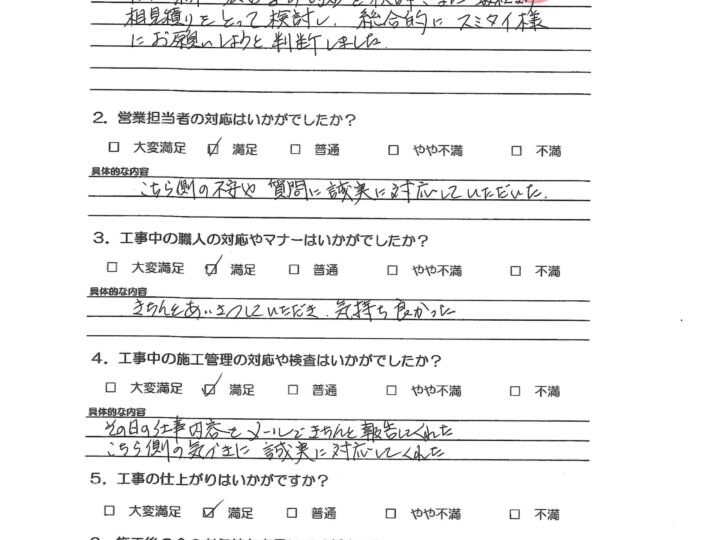 相見積りをとって検討し、総合的にスミタイ様
にお願いしようと判断しました。
2. 営業担当者の対応はいかがでしたか？
□ 大変満足 ☑ 満足 □ 普通 □ やや不満 □ 不満
具体的な内容
こちら側の不安や質問に誠実に対応していただいた。
3. 工事中の職人の対応やマナーはいかがでしたか？
□ 大変満足 ☑ 満足 □ 普通 □ やや不満 □ 不満
具体的な内容
きちんとあいさつしていただき、気持ち良かった
4. 工事中の施工管理の対応や検査はいかがでしたか？
□ 大変満足 ☑ 満足 □ 普通 □ やや不満 □ 不満
具体的な内容
その日の仕事内容をメールできちんと報告してくれた
こちら側の気づきに誠実に対応してくれた
5. 工事の仕上がりはいかがですか？
□ 大変満足 ☑ 満足 □ 普通 □ やや不満 □ 不満